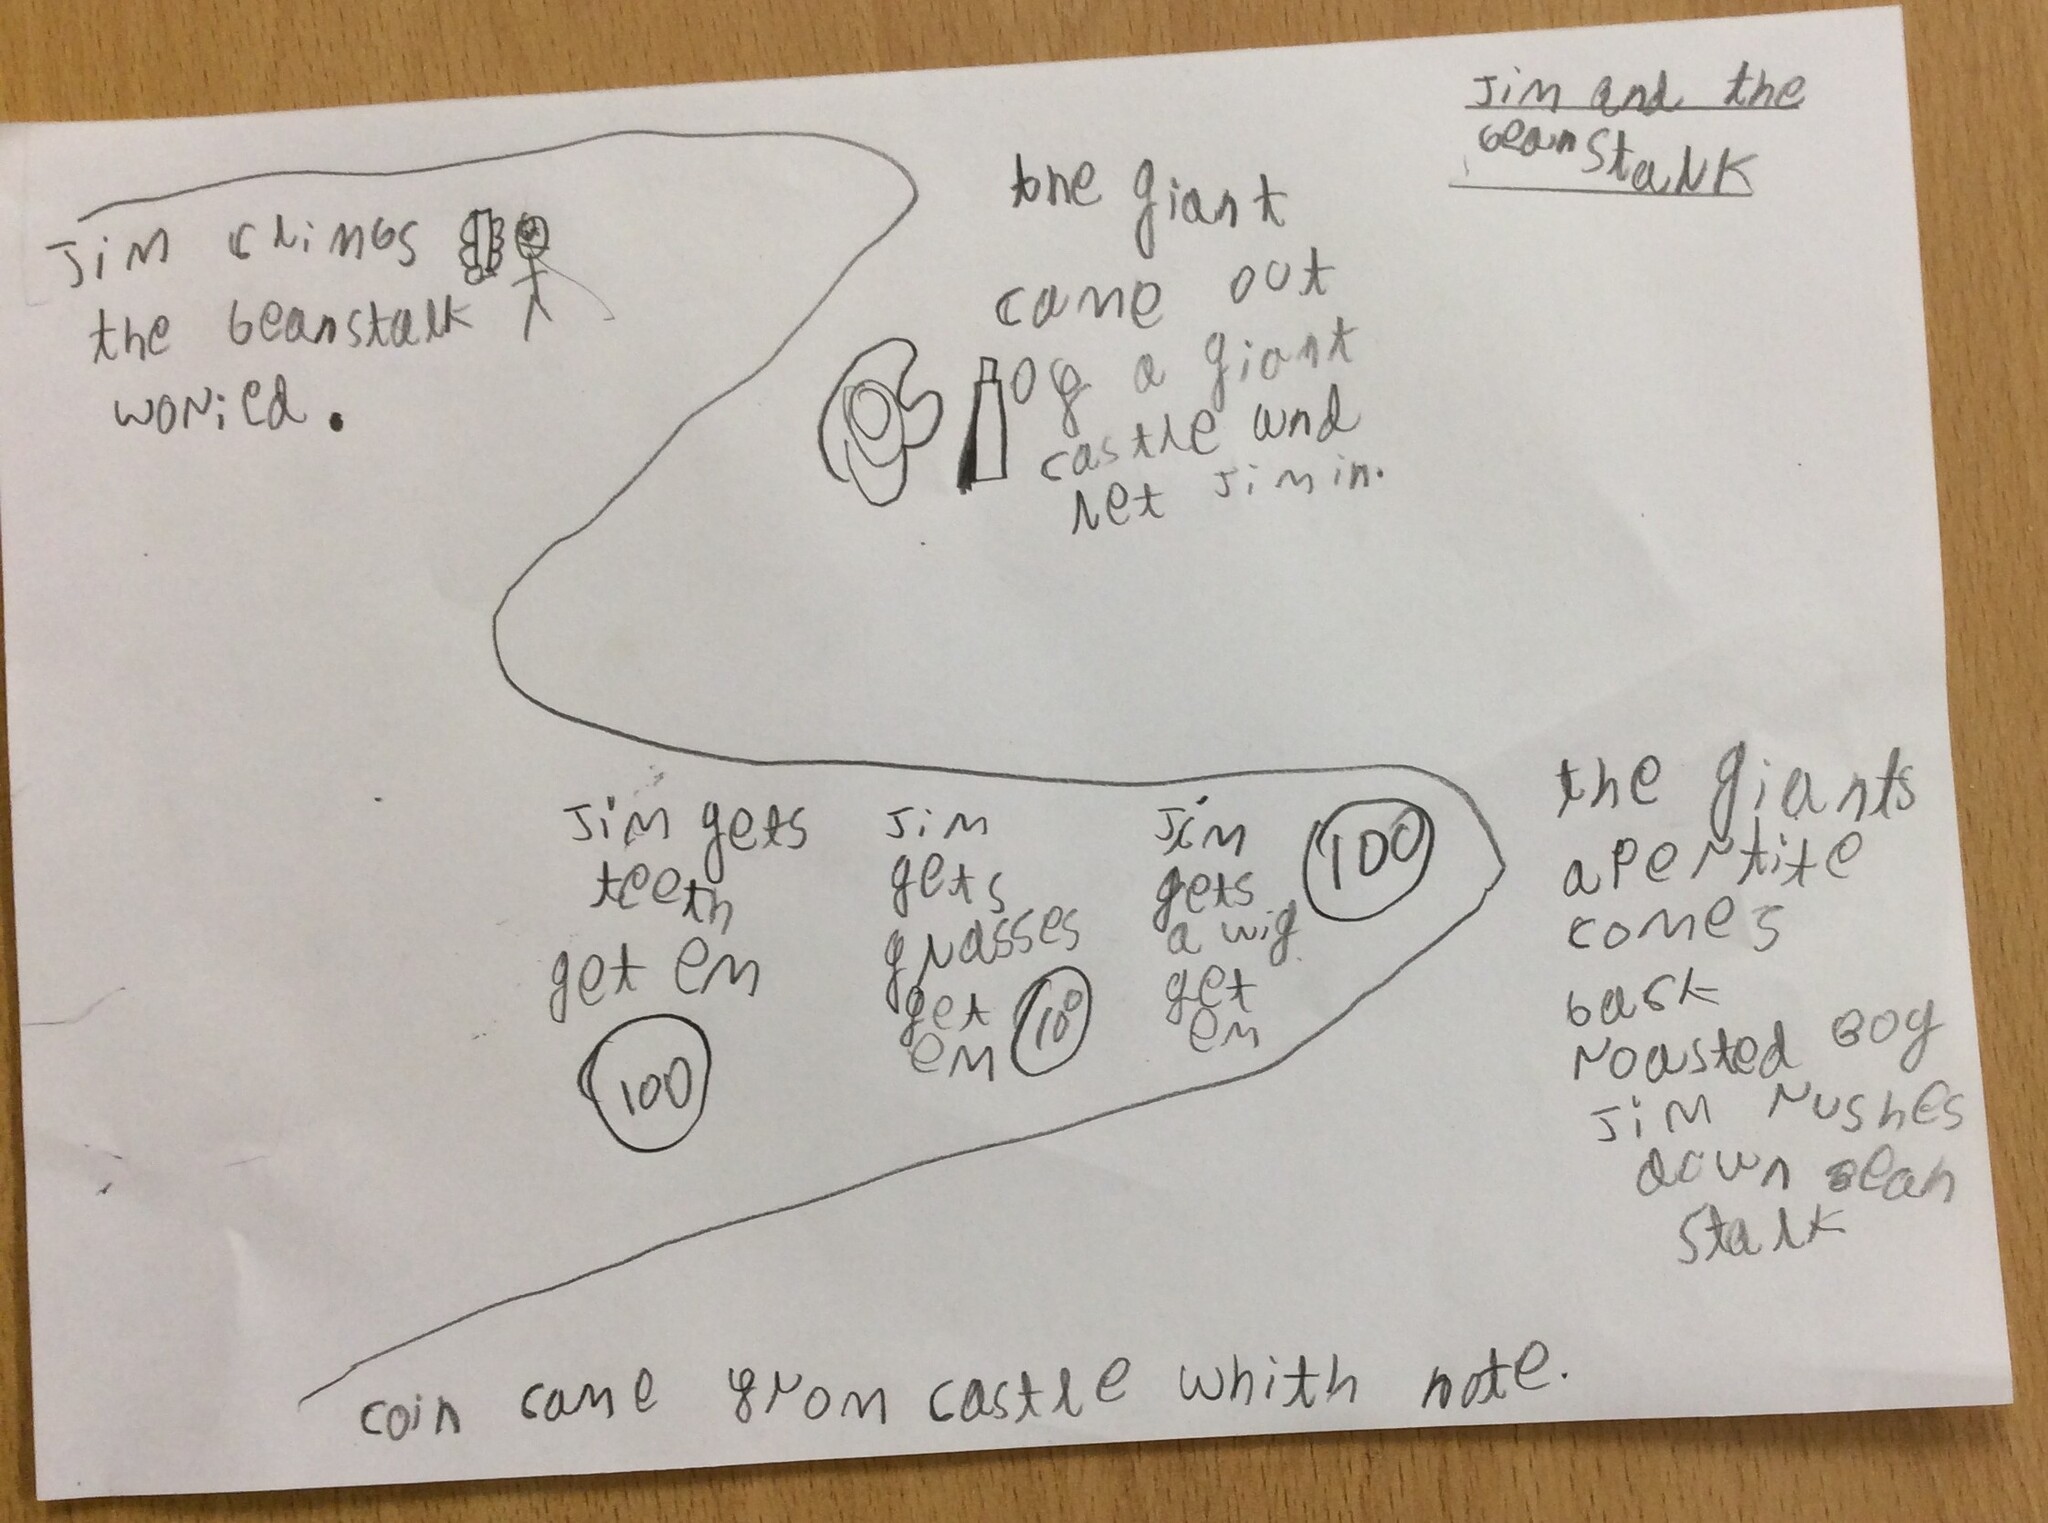 Jim and the
beanstalk
Jim climbs
the beanstalk
woried.
the giant
came out
of a giant
castle and
let Jim in.
Jim gets
teeth
get em
100
Jim
gets
glasses
get
em
100
Jim
gets
a wig
get
em
100
the giants
apertite
comes
back
roasted boy
Jim rushes
down bean
stalk
coin came from castle whith note.